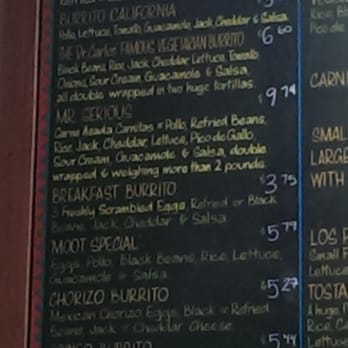 BURRITO CALIFORNIA
Pollo, Lettuce, Tomato, Guacamole, Jack, Cheddar & Salsa
THE Dr. Carlos FAMOUS VEGETARIAN BURRITO $6 60
Black Beans, Rice, Jack, Cheddar, Lettuce, Tomato,
Onions, Sour Cream, Guacamole & Salsa,
all double wrapped in two huge tortillas
MR. SERIOUS $9 74
Carne Asada Carnitas or Pollo, Refried Beans,
Rice Jack, Cheddar, Lettuce, Pico de Gallo,
Sour Cream, Guacamole & Salsa, double
wrapped & weighing more than 2 pounds
BREAKFAST BURRITO $3 75
3 Freshly Scrambled Eggs, Refried or Black
Beans, Jack, Cheddar & Salsa
MOOT SPECIAL $5 79
Eggs, Pollo, Black Beans, Rice, Lettuce,
Guacamole & Salsa
CHORIZO BURRITO $5 27
Mexican Chorizo, Eggs, Black or Refried
Beans, Jack or Cheddar Cheese
BURRITO $5 44
Rice, B
Pico de
CARNI
SMAL
LARGE
WITH
LOS F
Small F
Lettuce
TOSTA
A huge, f
Rice, C
Lettuce